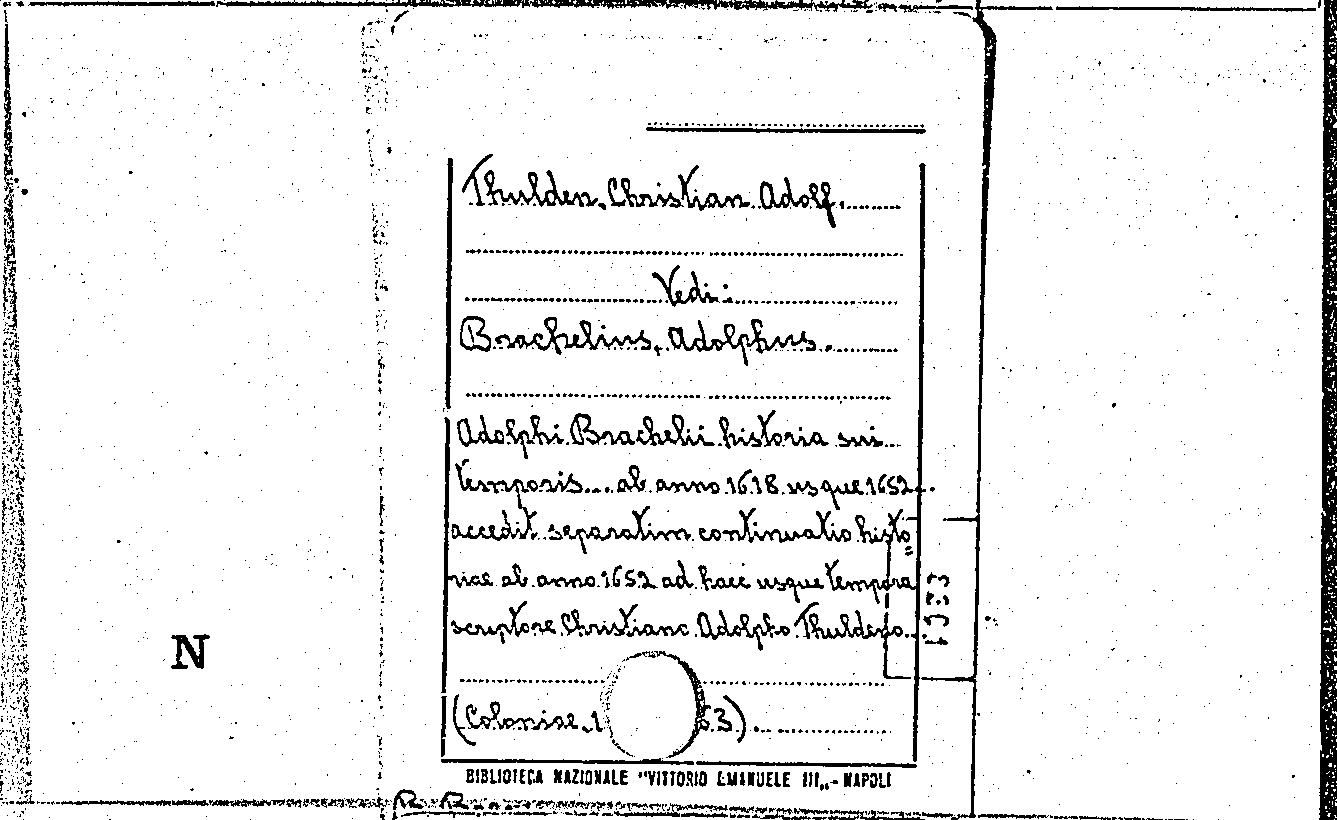 Thulden, Christian Adolf.
Vedi:
Brachelius, Adolphus.
Adolphi Brachelii historia sui
temporis... ab anno 1618 usque 1652..
accedit separatim continuatio histo=
riae ab anno 1652 ad haec usque tempora
scriptore Christiano Adolpho Thuldeno.
(Coloniae, 1 53).
N
BIBLIOTECA NAZIONALE "VITTORIO EMANUELE III„ - NAPOLI